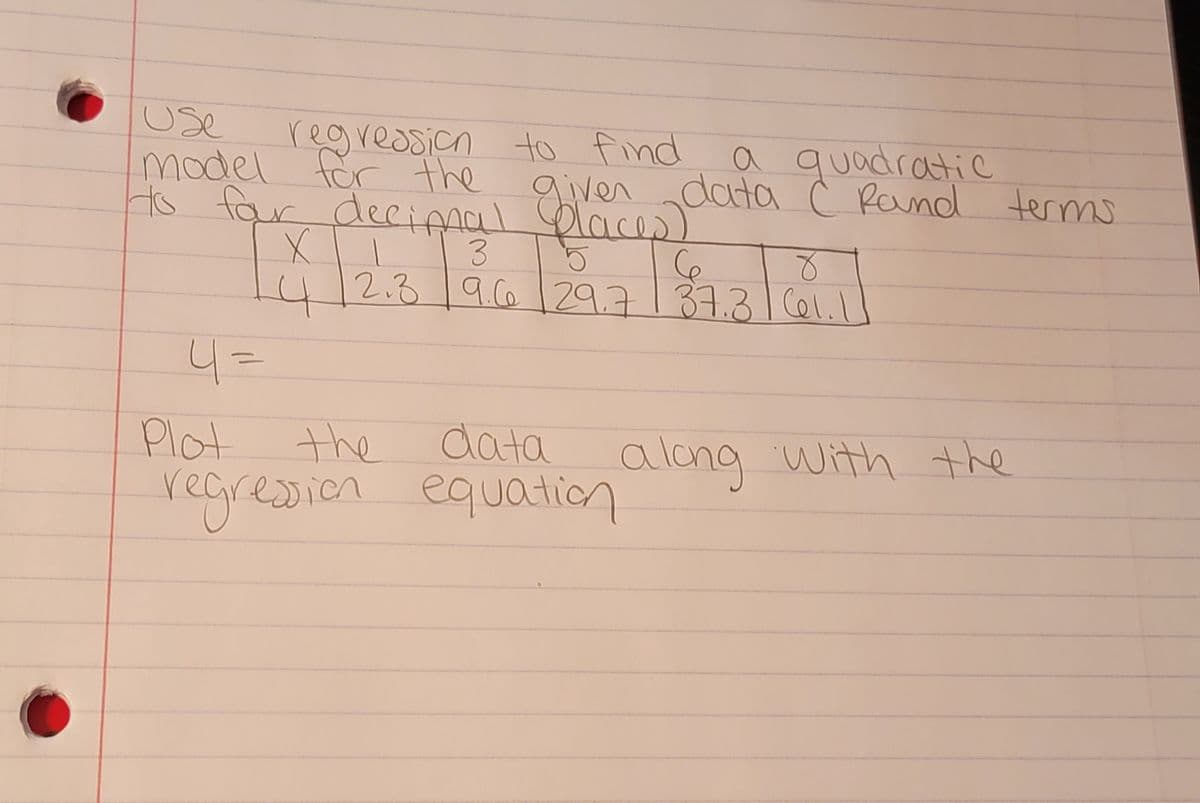 Use regression to find a quadratic
model for the given data ( Round terms
to four decimal places)
X | 1 | 3 | 5 | 6 | 8
y | 2.3 | 9.6 | 29.7 | 37.3 | 61.1
y =
Plot the data along with the
regression equation